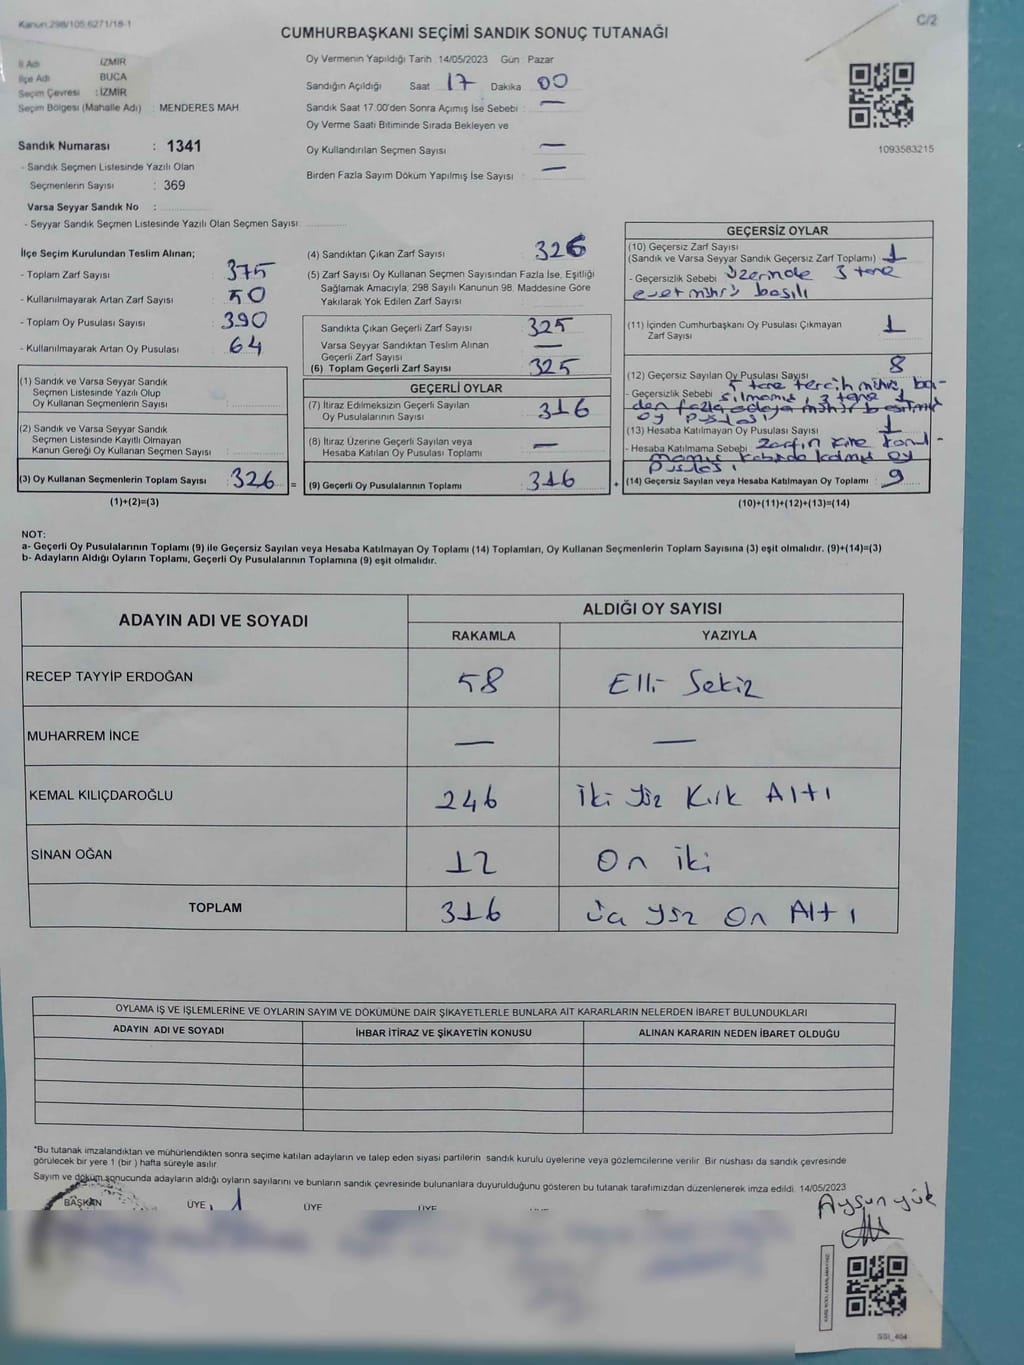 Kanun 298/105,6271/18-1
C/2
CUMHURBAŞKANI SEÇİMİ SANDIK SONUÇ TUTANAĞI
İl Adı İZMİR
İlçe Adı BUCA
Seçim Çevresi : İZMİR
Seçim Bölgesi (Mahalle Adı) : MENDERES MAH
Sandık Numarası : 1341
- Sandık Seçmen Listesinde Yazılı Olan
Seçmenlerin Sayısı : 369
Varsa Seyyar Sandık No :
- Seyyar Sandık Seçmen Listesinde Yazılı Olan Seçmen Sayısı
Oy Vermenin Yapıldığı Tarih 14/05/2023 Gün Pazar
Sandığın Açıldığı Saat 17 Dakika 00
Sandık Saat 17:00'den Sonra Açımış İse Sebebi : —
Oy Verme Saati Bitiminde Sırada Bekleyen ve
Oy Kullandırılan Seçmen Sayısı —
Birden Fazla Sayım Döküm Yapılmış İse Sayısı : —
1093583215
İlçe Seçim Kurulundan Teslim Alınan;
- Toplam Zarf Sayısı : 375
- Kullanılmayarak Artan Zarf Sayısı : 50
- Toplam Oy Pusulası Sayısı : 390
- Kullanılmayarak Artan Oy Pusulası : 64
(1) Sandık ve Varsa Seyyar Sandık
Seçmen Listesinde Yazılı Olup
Oy Kullanan Seçmenlerin Sayısı :
(2) Sandık ve Varsa Seyyar Sandık
Seçmen Listesinde Kayıtlı Olmayan
Kanun Gereği Oy Kullanan Seçmen Sayısı :
(3) Oy Kullanan Seçmenlerin Toplam Sayısı : 326 =
(1)+(2)=(3)
(4) Sandıktan Çıkan Zarf Sayısı : 326
(5) Zarf Sayısı Oy Kullanan Seçmen Sayısından Fazla İse, Eşitliği
Sağlamak Amacıyla, 298 Sayılı Kanunun 98. Maddesine Göre
Yakılarak Yok Edilen Zarf Sayısı :
Sandıkta Çıkan Geçerli Zarf Sayısı : 325
Varsa Seyyar Sandıktan Teslim Alınan
Geçerli Zarf Sayısı : —
(6) Toplam Geçerli Zarf Sayısı : 325
GEÇERLİ OYLAR
(7) İtiraz Edilmeksizin Geçerli Sayılan
Oy Pusulalarının Sayısı : 316
(8) İtiraz Üzerine Geçerli Sayılan veya
Hesaba Katılan Oy Pusulası Toplamı : —
(9) Geçerli Oy Pusulalarının Toplamı : 316 +
GEÇERSİZ OYLAR
(10) Geçersiz Zarf Sayısı
(Sandık ve Varsa Seyyar Sandık Geçersiz Zarf Toplamı) : 1
- Geçersizlik Sebebi : Üzerinde 3 tane
evet mührü basılı
(11) İçinden Cumhurbaşkanı Oy Pusulası Çıkmayan
Zarf Sayısı : 1
(12) Geçersiz Sayılan Oy Pusulası Sayısı : 8
- Geçersizlik Sebebi : 5 tane tercih mührü ba-
sılmamış, 3 tane 1
den fazla adaya mühür basılmış
oy pusulası
(13) Hesaba Katılmayan Oy Pusulası Sayısı : 1
- Hesaba Katılmama Sebebi : Zarfın
kalmış oy
pusulası
(14) Geçersiz Sayılan veya Hesaba Katılmayan Oy Toplamı : 9
(10)+(11)+(12)+(13)=(14)
NOT:
a- Geçerli Oy Pusulalarının Toplamı (9) ile Geçersiz Sayılan veya Hesaba Katılmayan Oy Toplamı (14) Toplamları, Oy Kullanan Seçmenlerin Toplam Sayısına (3) eşit olmalıdır. (9)+(14)=(3)
b- Adayların Aldığı Oyların Toplamı, Geçerli Oy Pusulalarının Toplamına (9) eşit olmalıdır.
ADAYIN ADI VE SOYADI
ALDIĞI OY SAYISI
RAKAMLA YAZIYLA
RECEP TAYYİP ERDOĞAN 58 Elli Sekiz
MUHARREM İNCE — —
KEMAL KILIÇDAROĞLU 246 İki Yüz Kırk Altı
SİNAN OĞAN 12 On iki
TOPLAM 316 Üç Yüz On Altı
OYLAMA İŞ VE İŞLEMLERİNE VE OYLARIN SAYIM VE DÖKÜMÜNE DAİR ŞİKAYETLERLE BUNLARA AİT KARARLARIN NELERDEN İBARET BULUNDUKLARI
ADAYIN ADI VE SOYADI İHBAR İTİRAZ VE ŞİKAYETİN KONUSU ALINAN KARARIN NEDEN İBARET OLDUĞU
*Bu tutanak imzalandıktan ve mühürlendikten sonra seçime katılan adayların ve talep eden siyasi partilerin sandık kurulu üyelerine veya gözlemcilerine verilir. Bir nüshası da sandık çevresinde
görülecek bir yere 1 (bir ) hafta süreyle asılır.
Sayım ve döküm sonucunda adayların aldığı oyların sayılarını ve bunların sandık çevresinde bulunanlara duyurulduğunu gösteren bu tutanak tarafımızdan düzenlenerek imza edildi. 14/05/2023
BAŞKAN ÜYE ÜYE ÜYE
Aysun yük
SSI_404